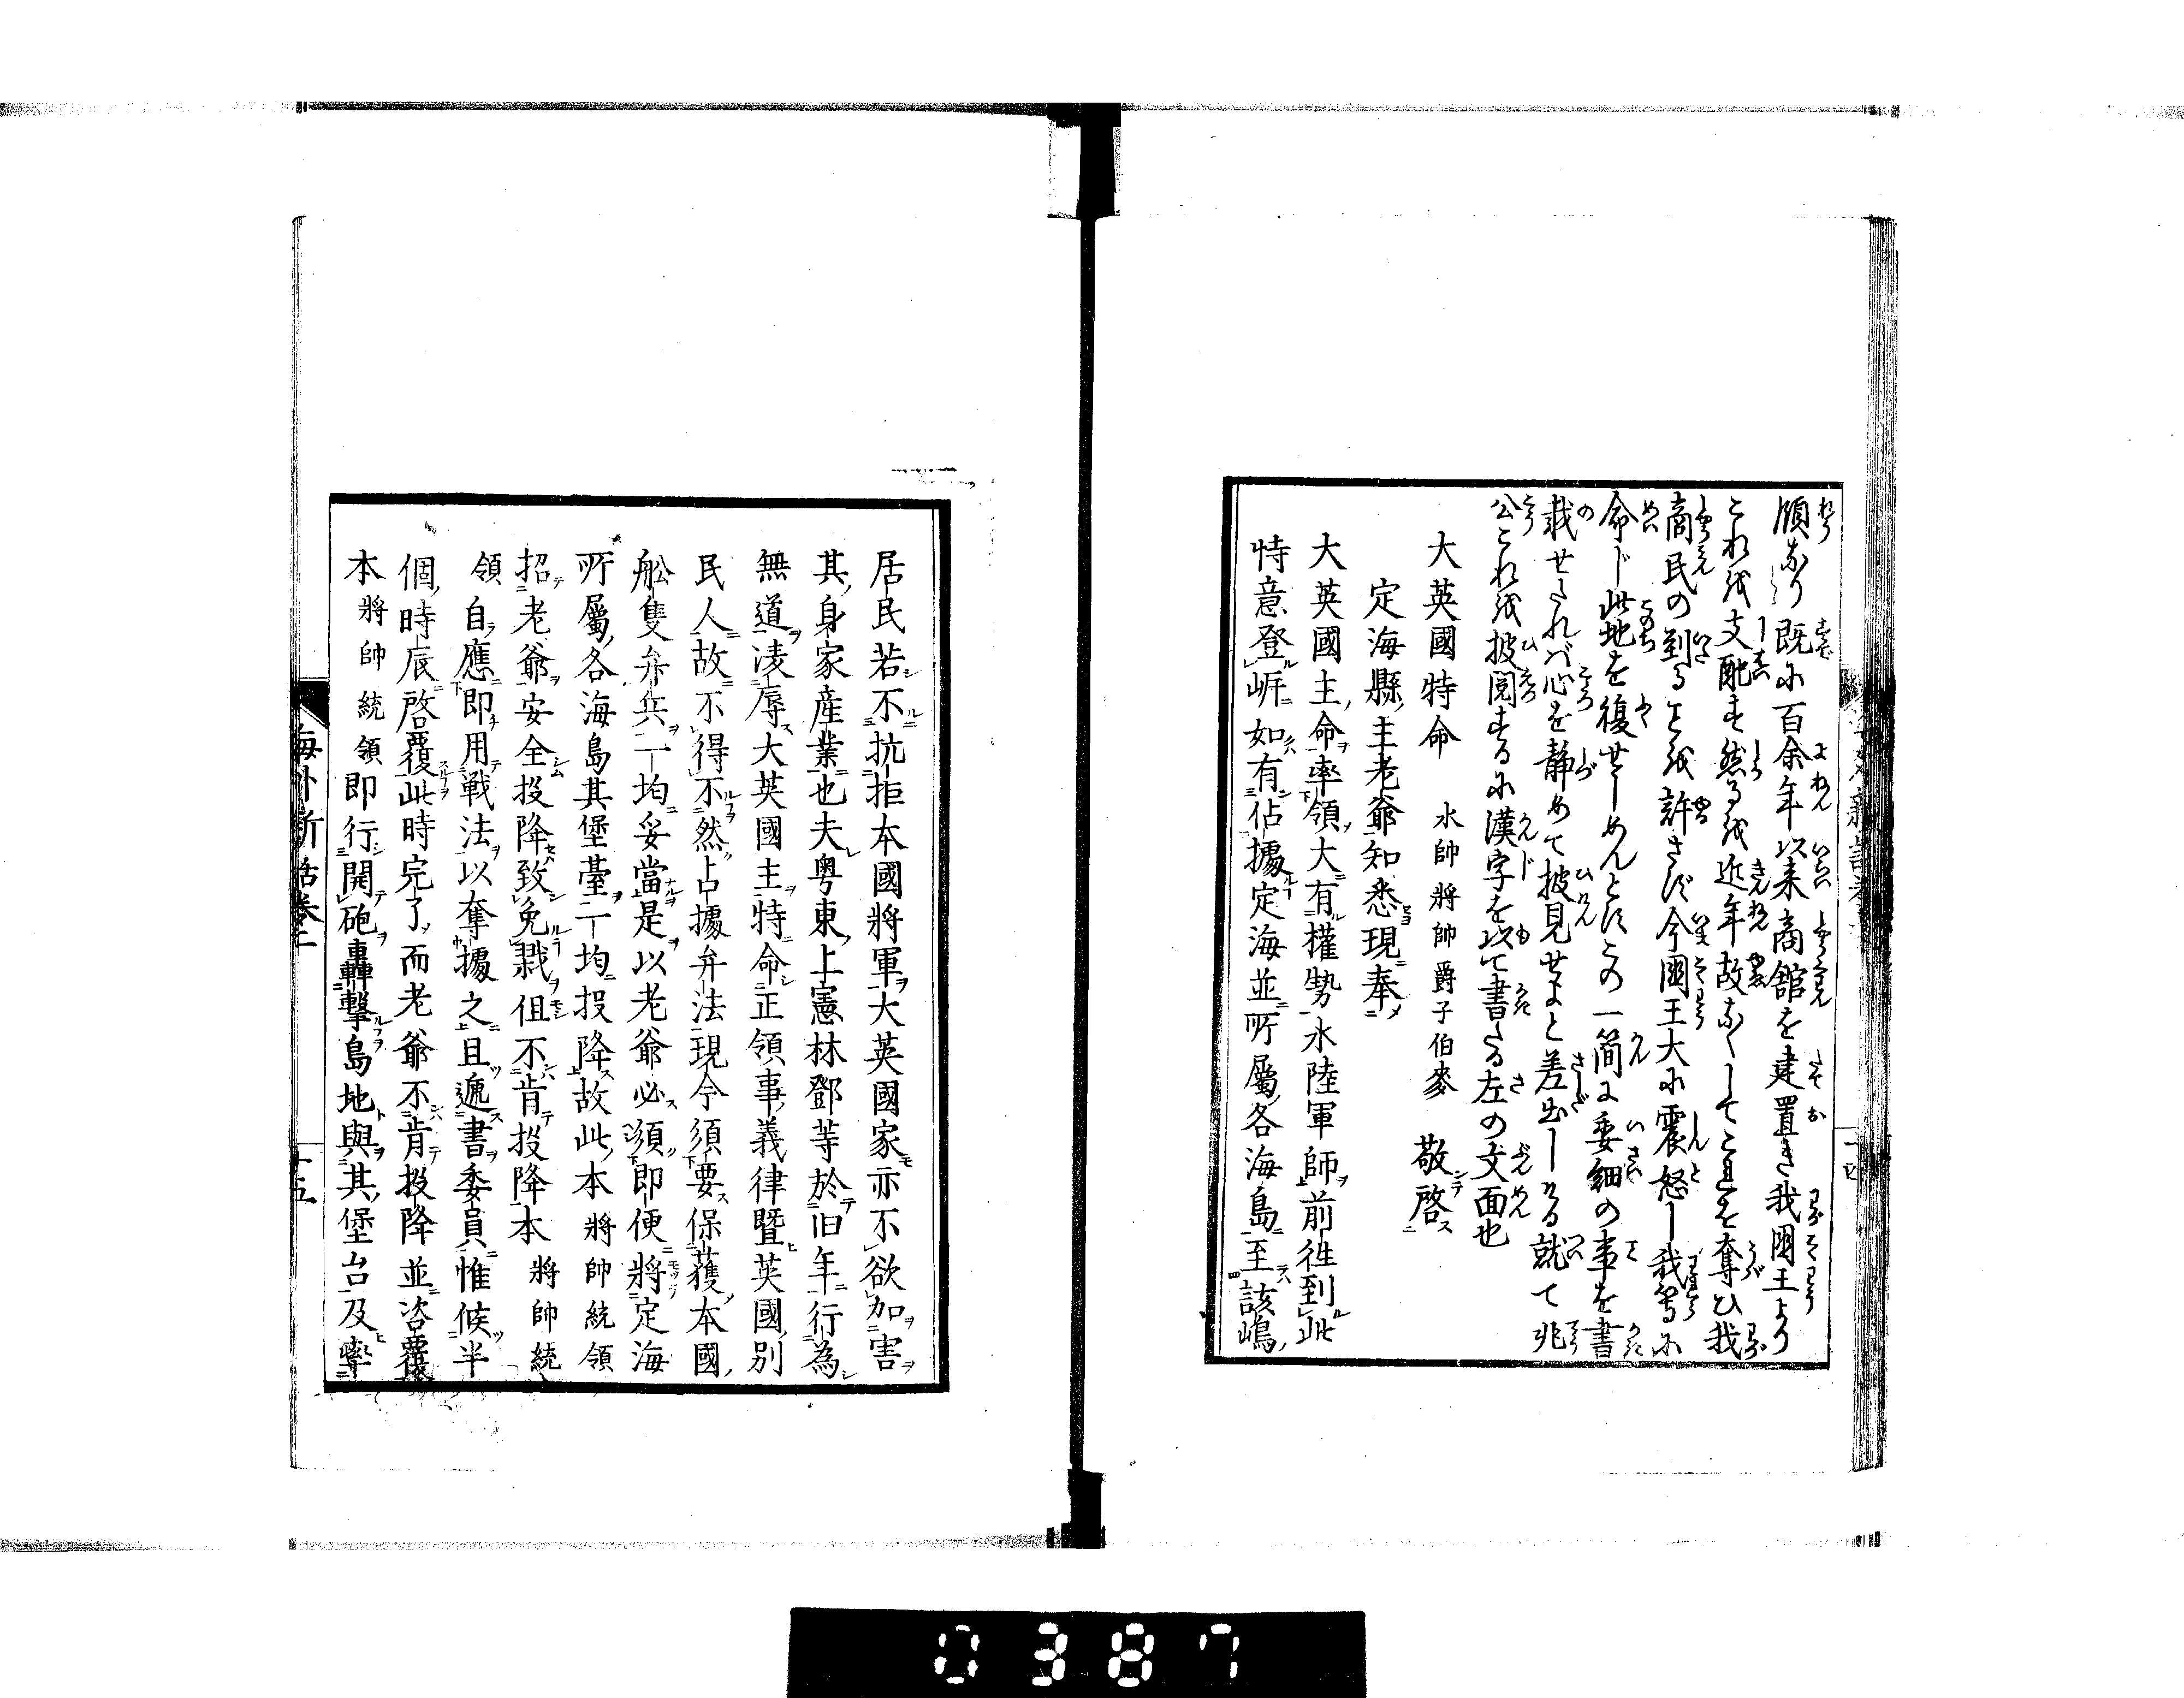 領なり既に百余年以来商舘を建置き我国王より
これを支配す然るを近年故なくしてこれを奪ひ我
商民の到ることを許さず今国王大に震怒し我等に
命じ此地を復せしめんとすこの一簡に委細の事を書
載せたれバ心を静めて披見せよと差出しける就て兆
公これを披閲するに漢字を以て書たる左の文面也
大英國特命 水師將帥爵子伯麥 敬啓
定海縣主老爺知悉現奉
大英國主命率領大有權勢水陸軍師前往到此
特意登岸如有佔據定海並所屬各海島至該嶋
居民若不抗拒本國將軍大英國家亦不欲加害
其身家産業也夫粤東上憲林鄧等於旧年行為
無道凌辱大英國主特命正領事義律曁英國別
民人故不得不然占據弁法現今須要保護本國
舩隻弁兵一均妥當是以老爺必須即便將定海
所屬各海島其堡臺一均投降故此本將帥統領
招老爺安全投降致免戮但不肯投降本將帥統
領自應即用戦法以奪據之且遞書委員惟候半
個時辰啓覆此時完了而老爺不肯投降並咨覆
本將帥統領即行開砲轟擊島地與其堡台及率
海外新話巻二
十五
0387